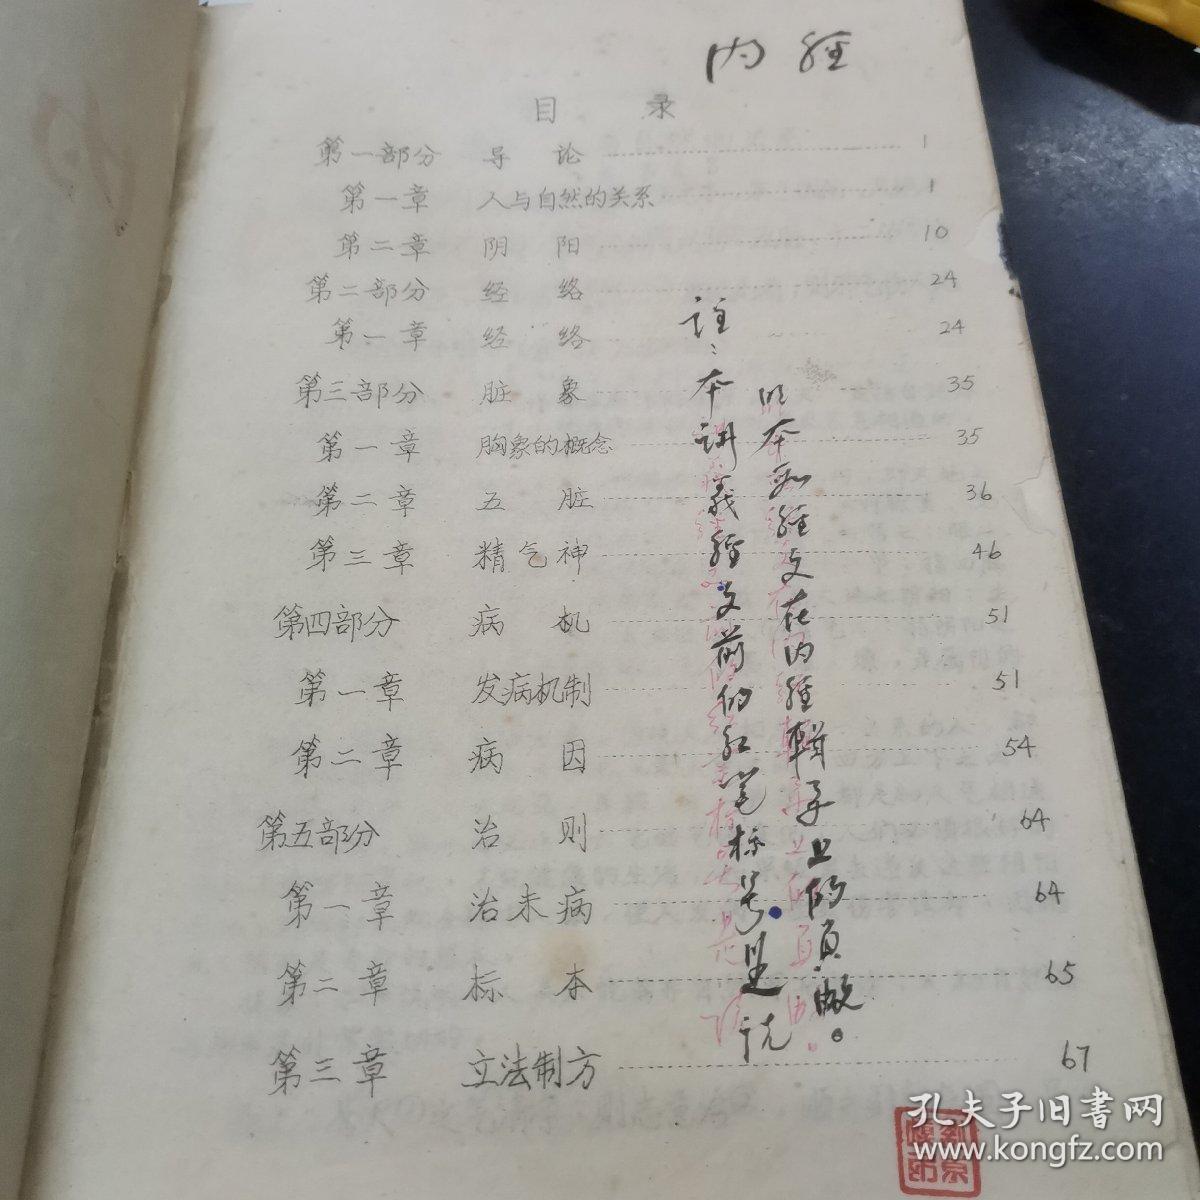 内 经
目 录
第一部分 导 论 1
第一章 人与自然的关系 1
第二章 阴 阳 10
第二部分 经 络 24
第一章 经 络 24
第三部分 脏 象 35
第一章 胸象的概念 35
第二章 五 脏 36
第三章 精气神 46
第四部分 病 机 51
第一章 发病机制 51
第二章 病 因 54
第五部分 治 则 64
第一章 治未病 64
第二章 标 本 65
第三章 立法制方 67
註：本讲義經文前的红笔标号是说
本经文在内經辑子上的頁
孔夫子旧书网
www.kongfz.com